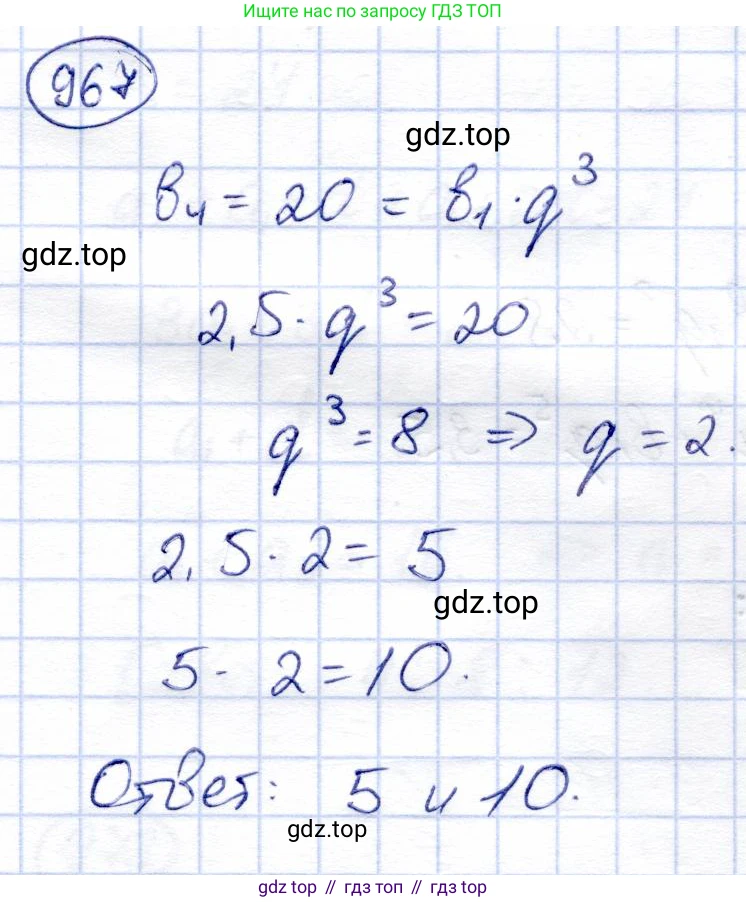 Ищите нас по запросу ГДЗ ТОП
967
gdz.top
в₄ = 20 = в₁ · q³
gdz.top
2,5 · q³ = 20
q³ = 8 ⇒ q = 2.
2,5 · 2 = 5
gdz.top
5 · 2 = 10.
Ответ: 5 и 10.
gdz.top
gdz.top // гдз топ // gdz.top